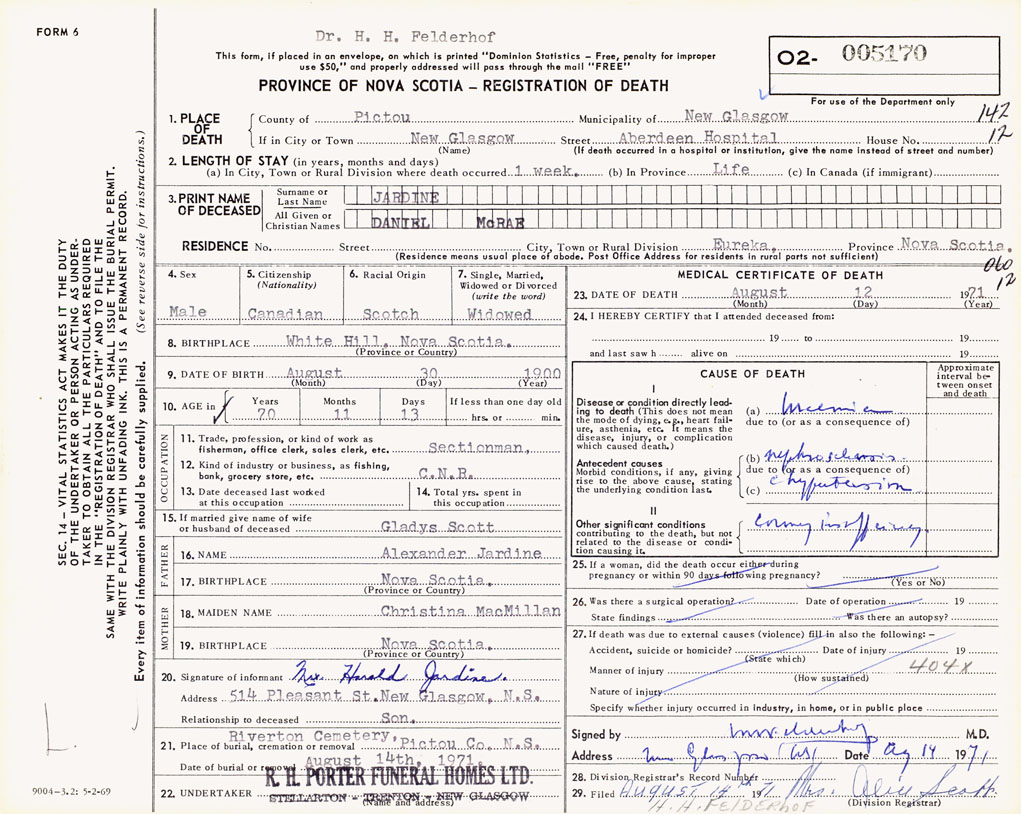 FORM 6
Dr. H. H. Felderhof
This form, if placed in an envelope, on which is printed "Dominion Statistics – Free, penalty for improper
use $50," and properly addressed will pass through the mail "FREE"
PROVINCE OF NOVA SCOTIA – REGISTRATION OF DEATH
02- 005170
For use of the Department only
1. PLACE OF DEATH
County of Pictou Municipality of New Glasgow 142
If in City or Town New Glasgow Street Aberdeen Hospital House No. 12
(Name) (If death occurred in a hospital or institution, give the name instead of street and number)
2. LENGTH OF STAY (in years, months and days)
(a) In City, Town or Rural Division where death occurred 1 week. (b) In Province Life (c) In Canada (if immigrant)
3. PRINT NAME OF DECEASED
Surname or Last Name JARDINE
All Given or Christian Names DANIEL McRAE
RESIDENCE No. Street City, Town or Rural Division Eureka, Province Nova Scotia.
(Residence means usual place of abode. Post Office Address for residents in rural parts not sufficient)
060
12
4. Sex
Male
5. Citizenship
(Nationality)
Canadian
6. Racial Origin
Scotch
7. Single, Married,
Widowed or Divorced
(write the word)
Widowed
8. BIRTHPLACE White Hill, Nova Scotia.
(Province or Country)
9. DATE OF BIRTH August 30 1900
(Month) (Day) (Year)
10. AGE in
Years Months Days If less than one day old
70 11 13 hrs. or min.
OCCUPATION
11. Trade, profession, or kind of work as
fisherman, office clerk, sales clerk, etc. Sectionman,
12. Kind of industry or business, as fishing,
bank, grocery store, etc. C.N.R.
13. Date deceased last worked
at this occupation
14. Total yrs. spent in
this occupation
15. If married give name of wife
or husband of deceased Gladys Scott
FATHER
16. NAME Alexander Jardine
17. BIRTHPLACE Nova Scotia.
(Province or Country)
MOTHER
18. MAIDEN NAME Christina MacMillan
19. BIRTHPLACE Nova Scotia.
(Province or Country)
20. Signature of informant Mrs. Harold Jardine.
Address 514 Pleasant St. New Glasgow, N.S.
Relationship to deceased Son.
Riverton Cemetery,
21. Place of burial, cremation or removal Pictou Co., N.S.
Date of burial or removal August 14th, 1971.
R. H. PORTER FUNERAL HOMES LTD.
22. UNDERTAKER STELLARTON - TRENTON - NEW GLASGOW
(Name and address)
MEDICAL CERTIFICATE OF DEATH
23. DATE OF DEATH August 12 1971
(Month) (Day) (Year)
24. I HEREBY CERTIFY that I attended deceased from:
19 to 19
and last saw h alive on 19
CAUSE OF DEATH
Approximate
interval be-
tween onset
and death
I
Disease or condition directly lead-
ing to death (This does not mean
the mode of dying, e.g., heart fail-
ure, asthenia, etc. It means the
disease, injury, or complication
which caused death.)
(a) Uremia
due to (or as a consequence of)
Antecedent causes
Morbid conditions, if any, giving
rise to the above cause, stating
the underlying condition last.
(b) nephrosclerosis
due to (or as a consequence of)
(c) c hypertension
II
Other significant conditions
contributing to the death, but not
related to the disease or condi-
tion causing it.
Coronary insufficiency
25. If a woman, did the death occur either during
pregnancy or within 90 days following pregnancy?
(Yes or No)
26. Was there a surgical operation? Date of operation 19
State findings Was there an autopsy?
27. If death was due to external causes (violence) fill in also the following: –
Accident, suicide or homicide? Date of injury 19
(State which)
Manner of injury 404X
(How sustained)
Nature of injury
Specify whether injury occurred in industry, in home, or in public place
Signed by M.D.
Address New Glasgow (NS) Date Aug 14 1971
28. Division Registrar's Record Number
29. Filed August 14th 1971 Mrs. Scott
H. H. FELDERHOF (Division Registrar)
SEC. 14 – VITAL STATISTICS ACT MAKES IT THE DUTY
OF THE UNDERTAKER OR PERSON ACTING AS UNDER-
TAKER TO OBTAIN ALL THE PARTICULARS REQUIRED
IN THE "REGISTRATION OF DEATH" AND TO FILE THE
SAME WITH THE DIVISION REGISTRAR WHO SHALL ISSUE THE BURIAL PERMIT.
WRITE PLAINLY WITH UNFADING INK. THIS IS A PERMANENT RECORD.
Every item of information should be carefully supplied. (See reverse side for instructions.)
9004-3.2: 5-2-69